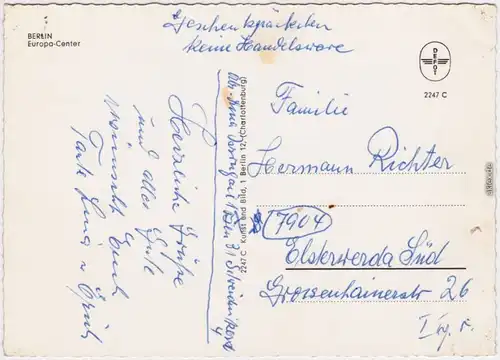 BERLIN
Europa-Center
Geschenkpäckchen
keine Handelsware
DEFOT
2247 C
Familie
Hermann Richter
7904
Elsterwerda Süd
Grossenhainerstr 26
Herzliche Grüße
und alles Gute
wünscht Euch
Tante
Abs. 1 Bln 31
2247 C Kunst und Bild, 1 Berlin 12, (Charlottenburg)